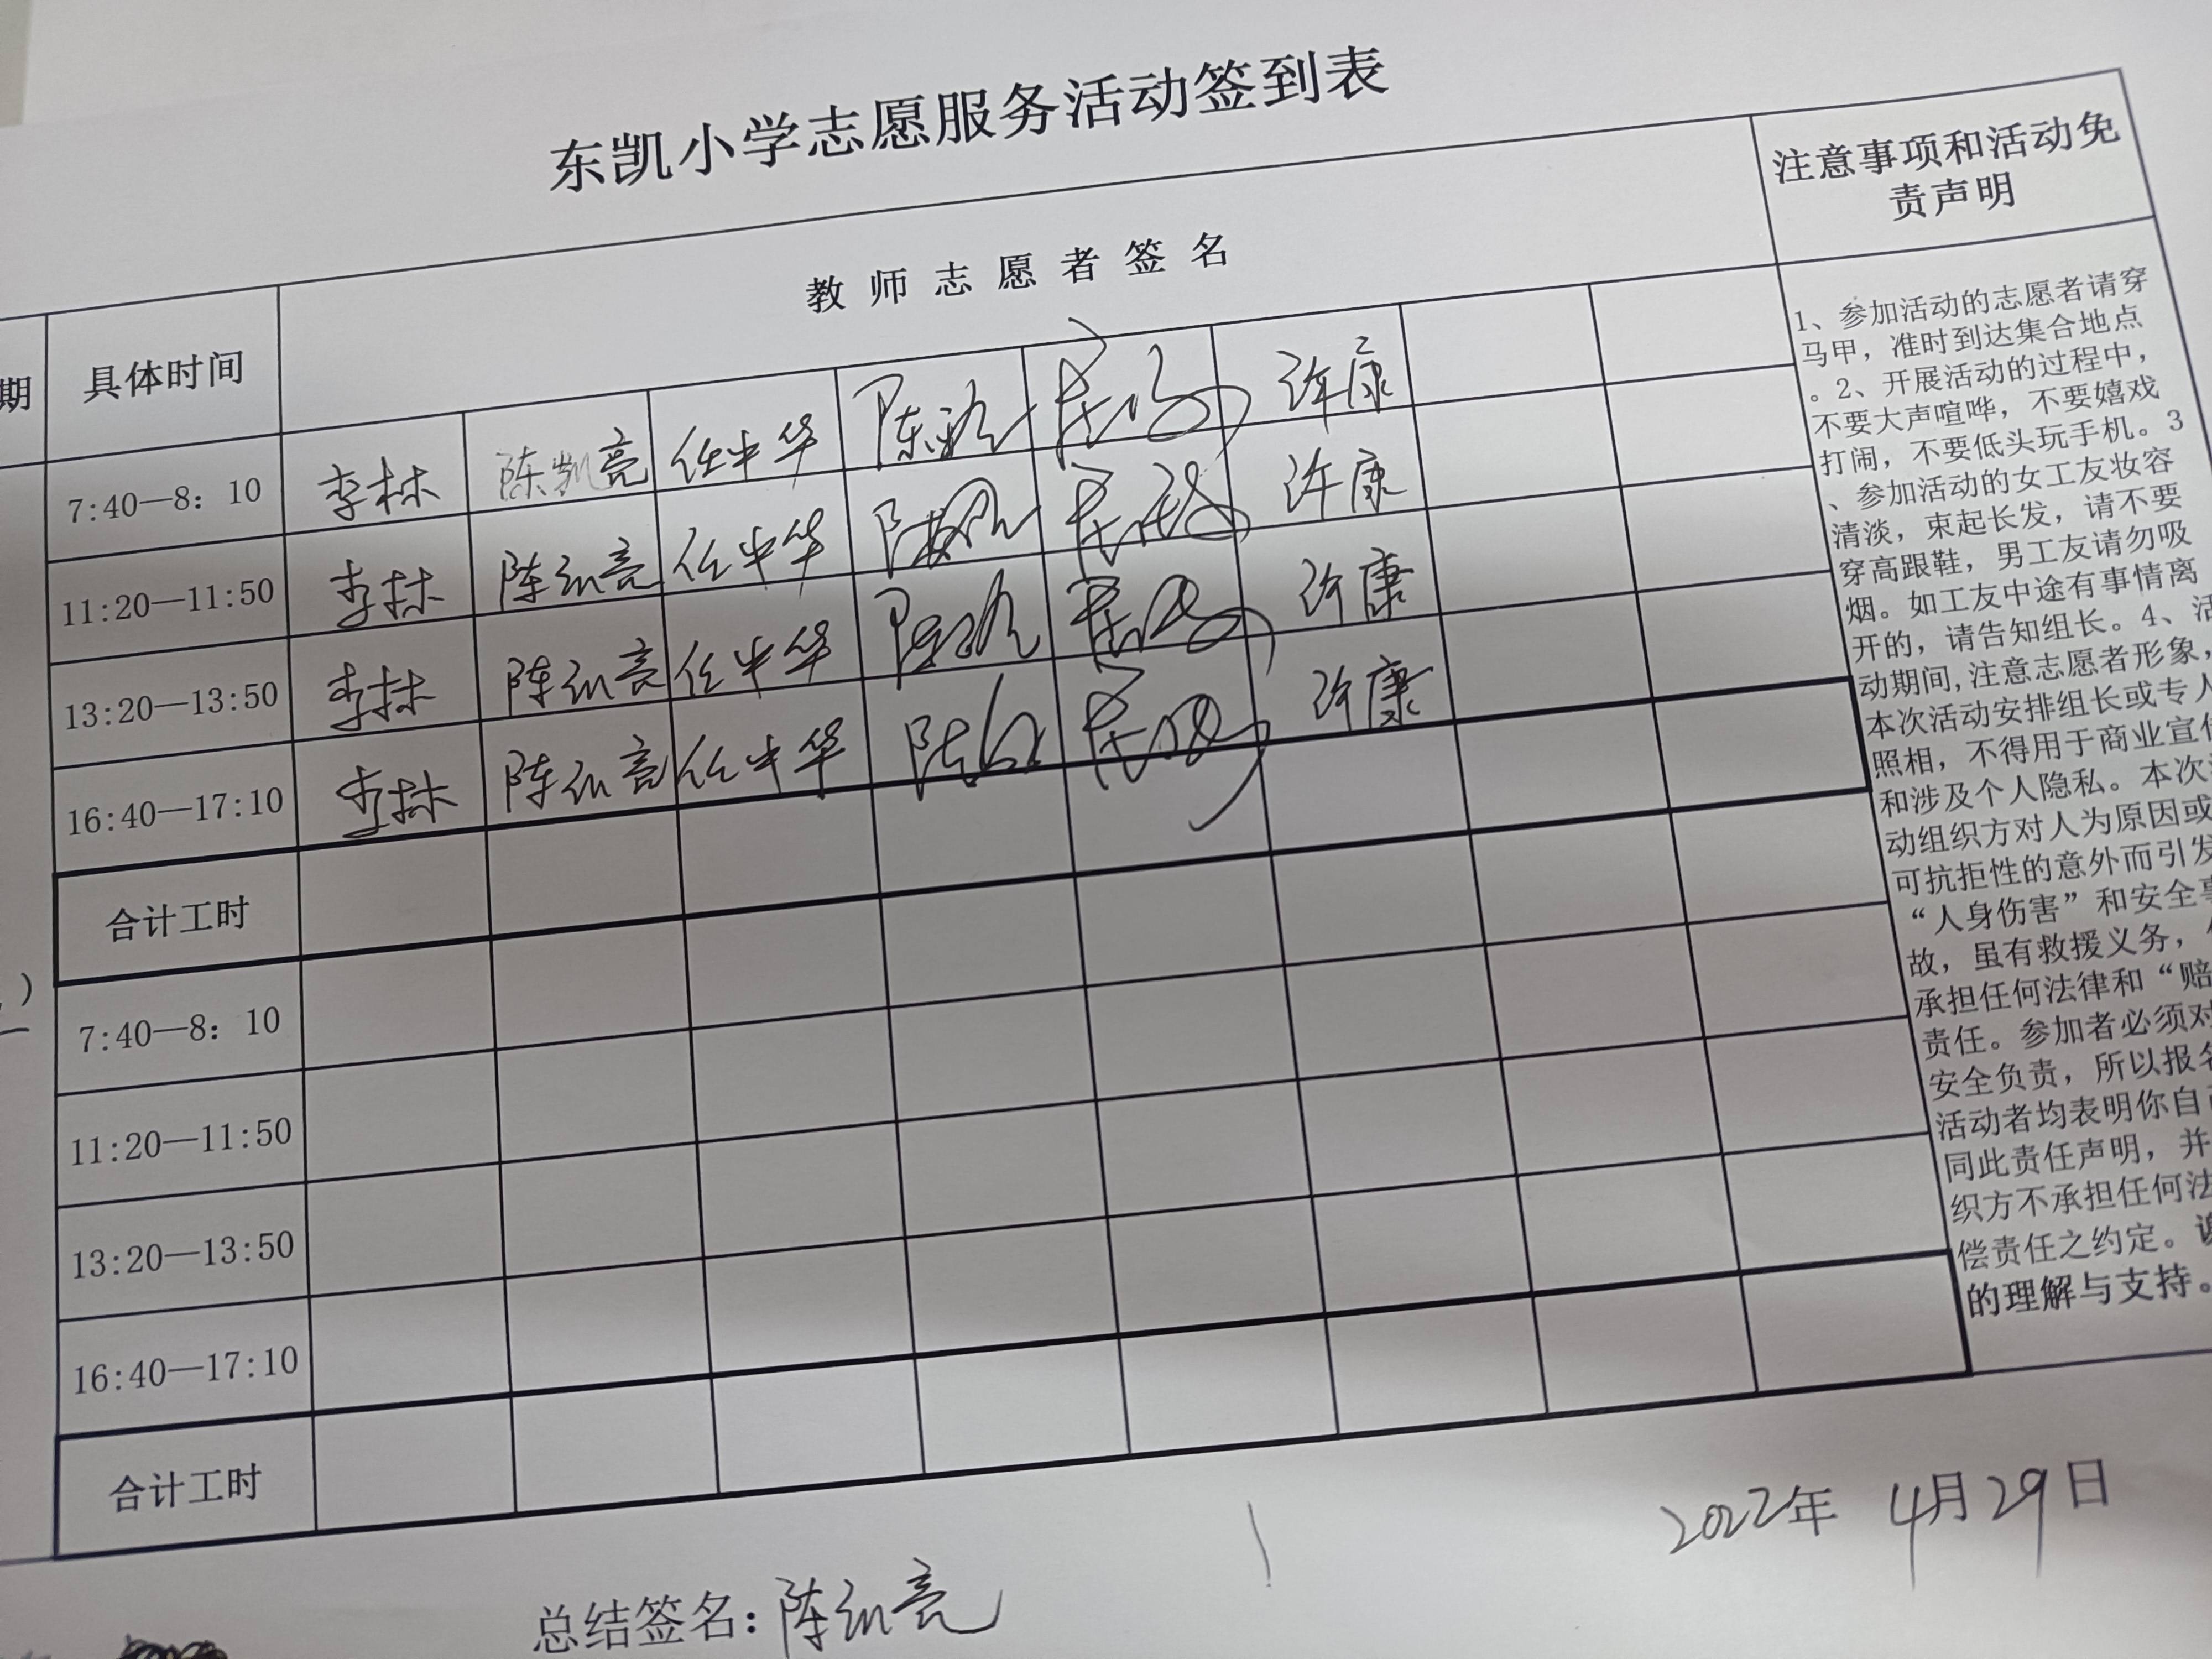 东凯小学志愿服务活动签到表
期 具体时间 教师志愿者签名 注意事项和活动免
责声明
7:40—8：10 李林 陈凯亮 任中华 许康
11:20—11:50 李林 陈凯亮 任中华 许康
13:20—13:50 李林 陈凯亮 任中华 许康
16:40—17:10 李林 陈凯亮 任中华 许康
合计工时
7:40—8：10
11:20—11:50
13:20—13:50
16:40—17:10
合计工时
1、参加活动的志愿者请穿
马甲，准时到达集合地点
。2、开展活动的过程中，
不要大声喧哗，不要嬉戏
打闹，不要低头玩手机。3
、参加活动的女工友妆容
清淡，束起长发，请不要
穿高跟鞋，男工友请勿吸
烟。如工友中途有事情离
开的，请告知组长。4、活
动期间,注意志愿者形象，
本次活动安排组长或专人
照相，不得用于商业宣传
和涉及个人隐私。本次
动组织方对人为原因或
可抗拒性的意外而引发
“人身伤害”和安全事
故，虽有救援义务，
承担任何法律和“赔
责任。参加者必须对
安全负责，所以报名
活动者均表明你自己
同此责任声明，并
织方不承担任何法
偿责任之约定。
的理解与支持。
总结签名：陈凯亮
2022年 4月29日